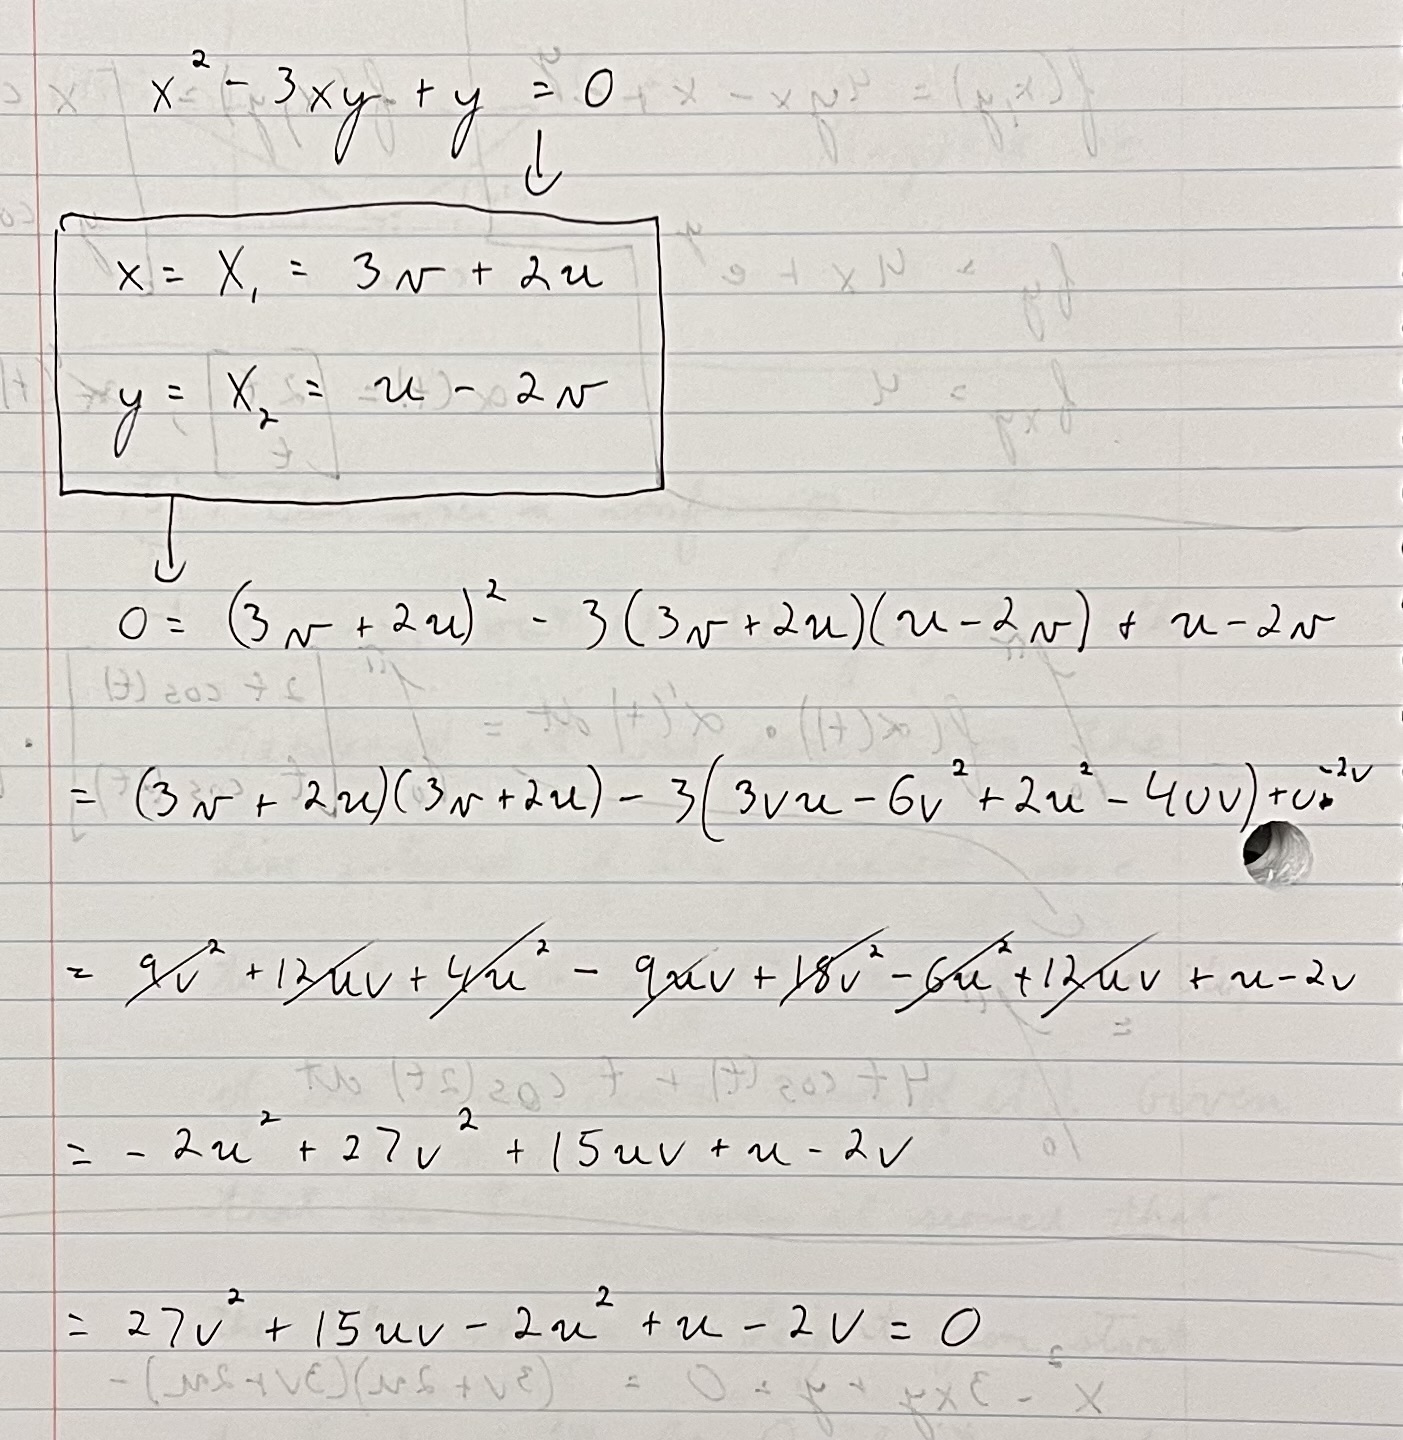 x² - 3xy + y = 0
↓
x = X₁ = 3v + 2u
y = X₂ = u - 2v
↓
0 = (3v + 2u)² - 3(3v + 2u)(u - 2v) + u - 2v
= (3v + 2u)(3v + 2u) - 3(3vu - 6v² + 2u² - 4uv) + u - 2v
= 9v² + 12uv + 4u² - 9uv + 18v² - 6u² + 12uv + u - 2v
= - 2u² + 27v² + 15uv + u - 2v
= 27v² + 15uv - 2u² + u - 2v = 0